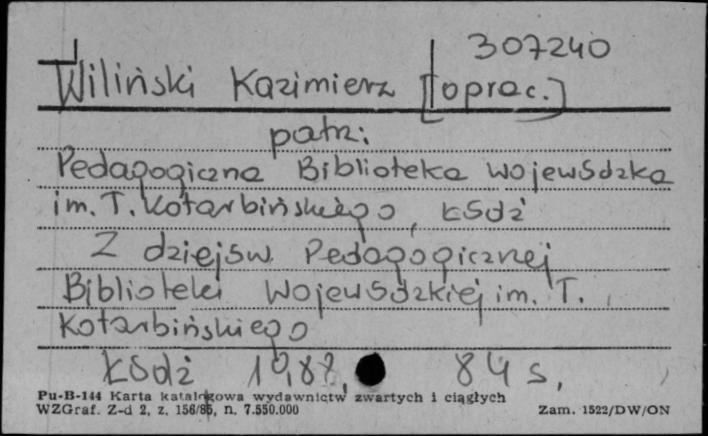 307240
Wiliński Kazimierz [oprac.]
patrz:
Pedagogiczna Biblioteka Wojewódzka
im. T. Kotarbińskiego, Łódź
Z dziejów Pedagogicznej
Biblioteki Wojewódzkiej im. T.
Kotarbińskiego
Łódź 1988, 84 s.
Pu-B-144 Karta katalogowa wydawnictw zwartych i ciągłych
WZGraf. Z-d 2, z. 156/86, n. 7.550.000 Zam. 1522/DW/ON